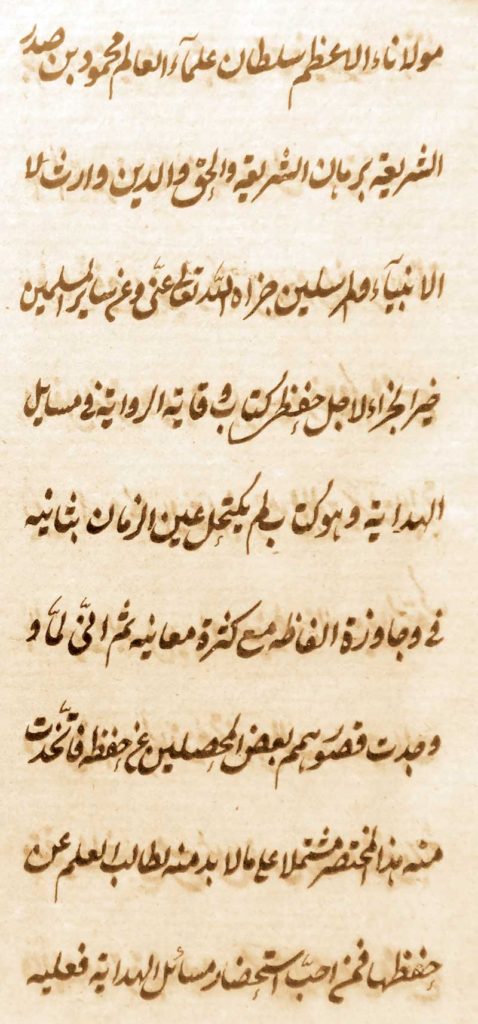 مولاناء الاعظم سلطان علمآء العالم محمود بن صدر
الشريعة برهان الشريعة والحق والدين وارث لا
الانبيآء ولمرسلين جزاه اللّه تعالى عنّى وعن ساير المسلمين
خير الجزاء لاجل حفظى كتاب وقاية الرواية فى مسايل
الهداية وهو كتاب لم يكتحل عين الزمان بثانيه
فى وجاوزة الفاظه مع كثرة معانيه ثم انّى لمّا و
وجدت قصور همم بعض المحصلين عن حفظه فاتّخذت
منه هذا المختصر مشتملا على مالا بد منه لطالب العلم عن
حفظها فمن احبّ استحضار مسائل الهداية فعليه